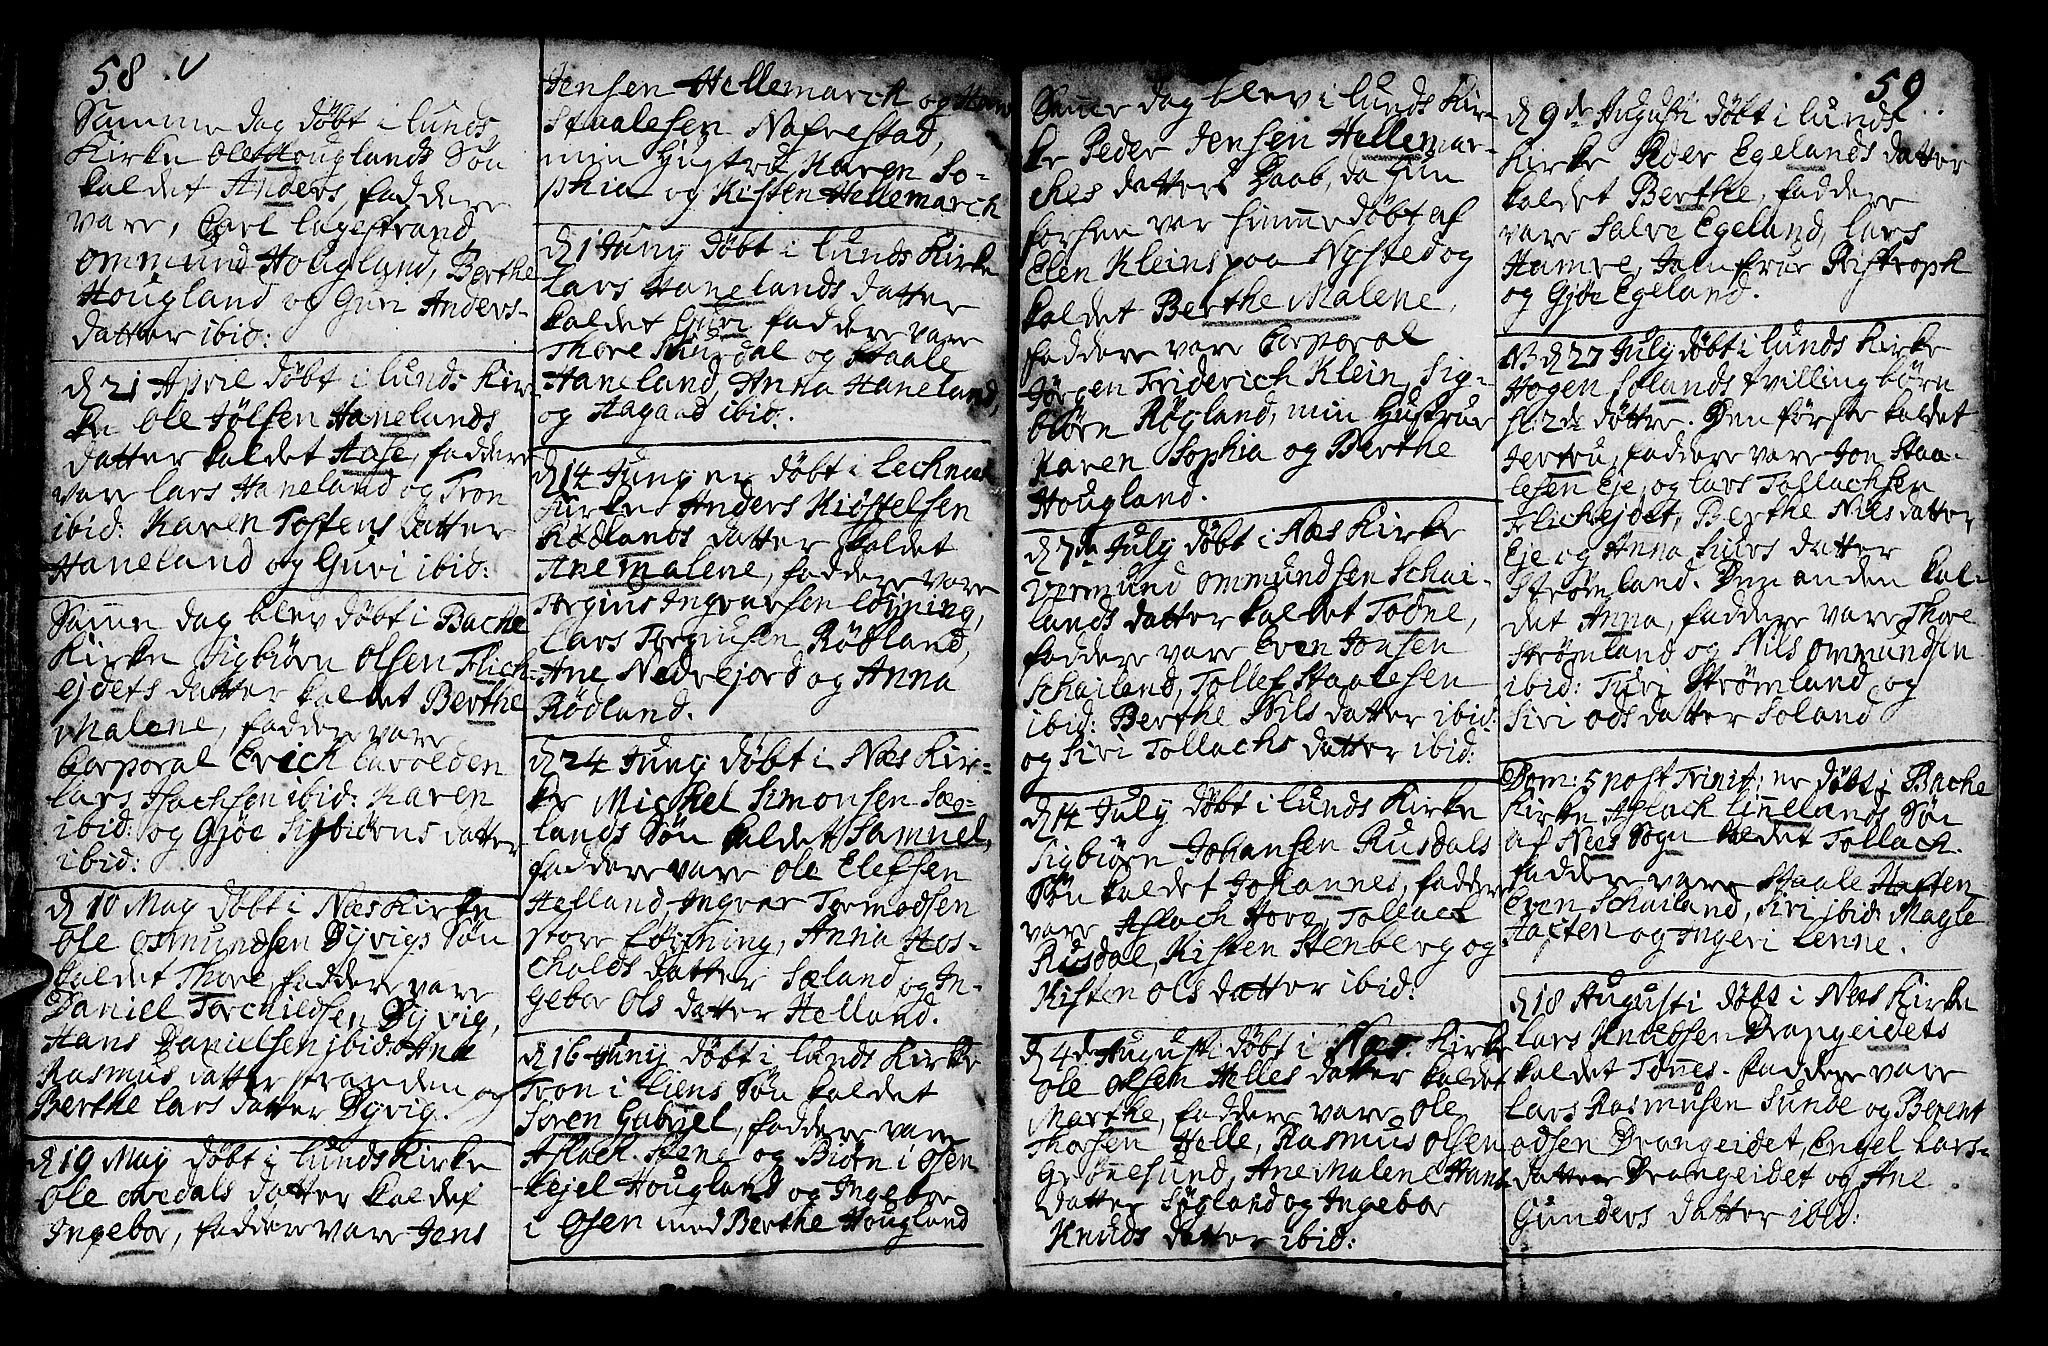 58
Samme dag døbt i lunds
Kirke Ole Houglands Søn
kaldet Anders, faddere
vare, Carl lagestrand
Ommund Hougland, Berthe
Hougland og Guri Anders-
datter ibid:
d 21 April døbt i lunds Kir-
ke Ole Jølsen Hanelands
datter kaldet Aase, faddere
vare lars Haneland og Tron
ibid: Karen Tostens datter
Haneland og Guri ibid:
Samme dag blev døbt i Bache
Kirke Sigbiørn Olsen Flich-
ejdets datter kaldet Berthe
Malene, faddere vare
Corporal Erich
lars Isachsen ibid: Karen
ibid: og Gjøe Sigbiørns datter
ibid:
d 10 May døbt i Næs Kirke
Ole Osmundsen Dyvigs Søn
kaldet Thore, faddere vare
Daniel Torchildsen Dyvig,
Hans Danielsen ibid: Ane
Rasmus datter stranden og
Berthe lars datter Dyvig.
d 19 May døbt i lunds Kirke
Ole datter kaldet
Ingebor, faddere vare Jens
Jensen Hellemarck og Hans
Staalesen Nafrestad,
min Hustru Karen So-
phia og Kisten Hellemarch
d 1 Juny døbt i lunds Kirke
lars Hanelands datter
kaldet Guri faddere vare
Thore Suurdal og Staale
Haneland, Anna Haneland,
og Aagaad ibid:
d 14 Juny er døbt i
Kirke Anders Kiøstelsen
Rødlands datter kaldet
Anemalene, faddere vare
Torgius Ingvarsen løyning,
Lars Torgiusen Rødland,
Ane Nedrejord og Anna
Rødland.
d 24 Juny døbt i Næs Kir-
ke Michel Simonsen Sæg-
lands Søn kaldet Samuel,
faddere vare Ole Elefsen
Hefland, Ingvar Tormodsen
store løyning, Anna Hos-
cholds datter Sæland og In-
gebor Ols datter Helland.
d 16 Juny døbt i lunds Kirke
Tron i liens Søn kaldet
Søren Gabriel, faddere vare
Aslach Stene og Biørn i Osen
kejel Hougland og Ingebor
i Osen med Berthe Hougland
59
Samme dag blev i lunds Kir-
ke Peder Jensen Hellemar-
ches datters Daab, da hun
forhen var hiemmedøbt af
Elen Kleins paa Nysted og
kaldet Berthe Malene,
faddere vare Corporal
Jørgen Friderich Klein, Sig-
biørn Røgland, min Hustrue
Karen Sophia og Berthe
Hougland.
d 7de July døbt i Næs Kirke
Vermund Ommundsen Schai-
lands datter kaldet Tone,
faddere vare Even Jonsen
Schailand, Tollef Staalesen
ibid: Berthe Nils datter ibid:
og Siri Tollachs datter ibid:
d 14 July døbt i lunds Kirke
Sigbiørn Johansen Rusdals
Søn kaldet Johannes, faddere
vare Aslach Hove, Tollach
Rusdal, Kisten Stenberg og
Kisten Ols datter ibid:
d 4de Augusti døbt i Næs Kirke
Ole Olsen Helles datter kaldet
Marthe, faddere vare Ole
Thorsen Helle, Rasmus Olsen
Grønnesund, Ane Malene Hans
datter Søgland og Ingebor
Knuds datter ibid:
d 9de Augusti døbt i lunds
Kirke Peder Egelands datter
kaldet Berthe, faddere
vare Salve Egeland, lars
Hamre, Jomfrue Ristroph
og Gjøe Egeland.
NB d 27 July døbt i lunds Kirke
Hogen Solands tvillingbørn
sl: 2de døttre. Den første kaldet
Jertru, faddere vare Jon Staa-
lesen Eje, og lars Tollachsen
Flichejdet, Berthe Nils datter
Eje og Anna Siurs datter
Strømland. Den anden kal-
det Anna, faddere vare Thore
Strømland og Nils Ommundsen
ibid: Turi Strømland og
Siri Ods datter Soland
Dom: 5 post Trinit: er døbt i Bache
Kirke Aslach linnelands Søn
af Nees Sogn kaldet Tollach.
faddere vare Staale Haften
Even Schailand, Siri ibid: Magle
Haften og Ingeri lenne.
d 18 Augusti døbt i Nees Kirke
lars Knudsen Drangeidets
kaldet Tønnes. faddere vare
lars Rasmusen Sunde og Berent
Odsen Drangeidet, Engel lars-
datter Drangeidet og Ane
Gunders datter ibid: